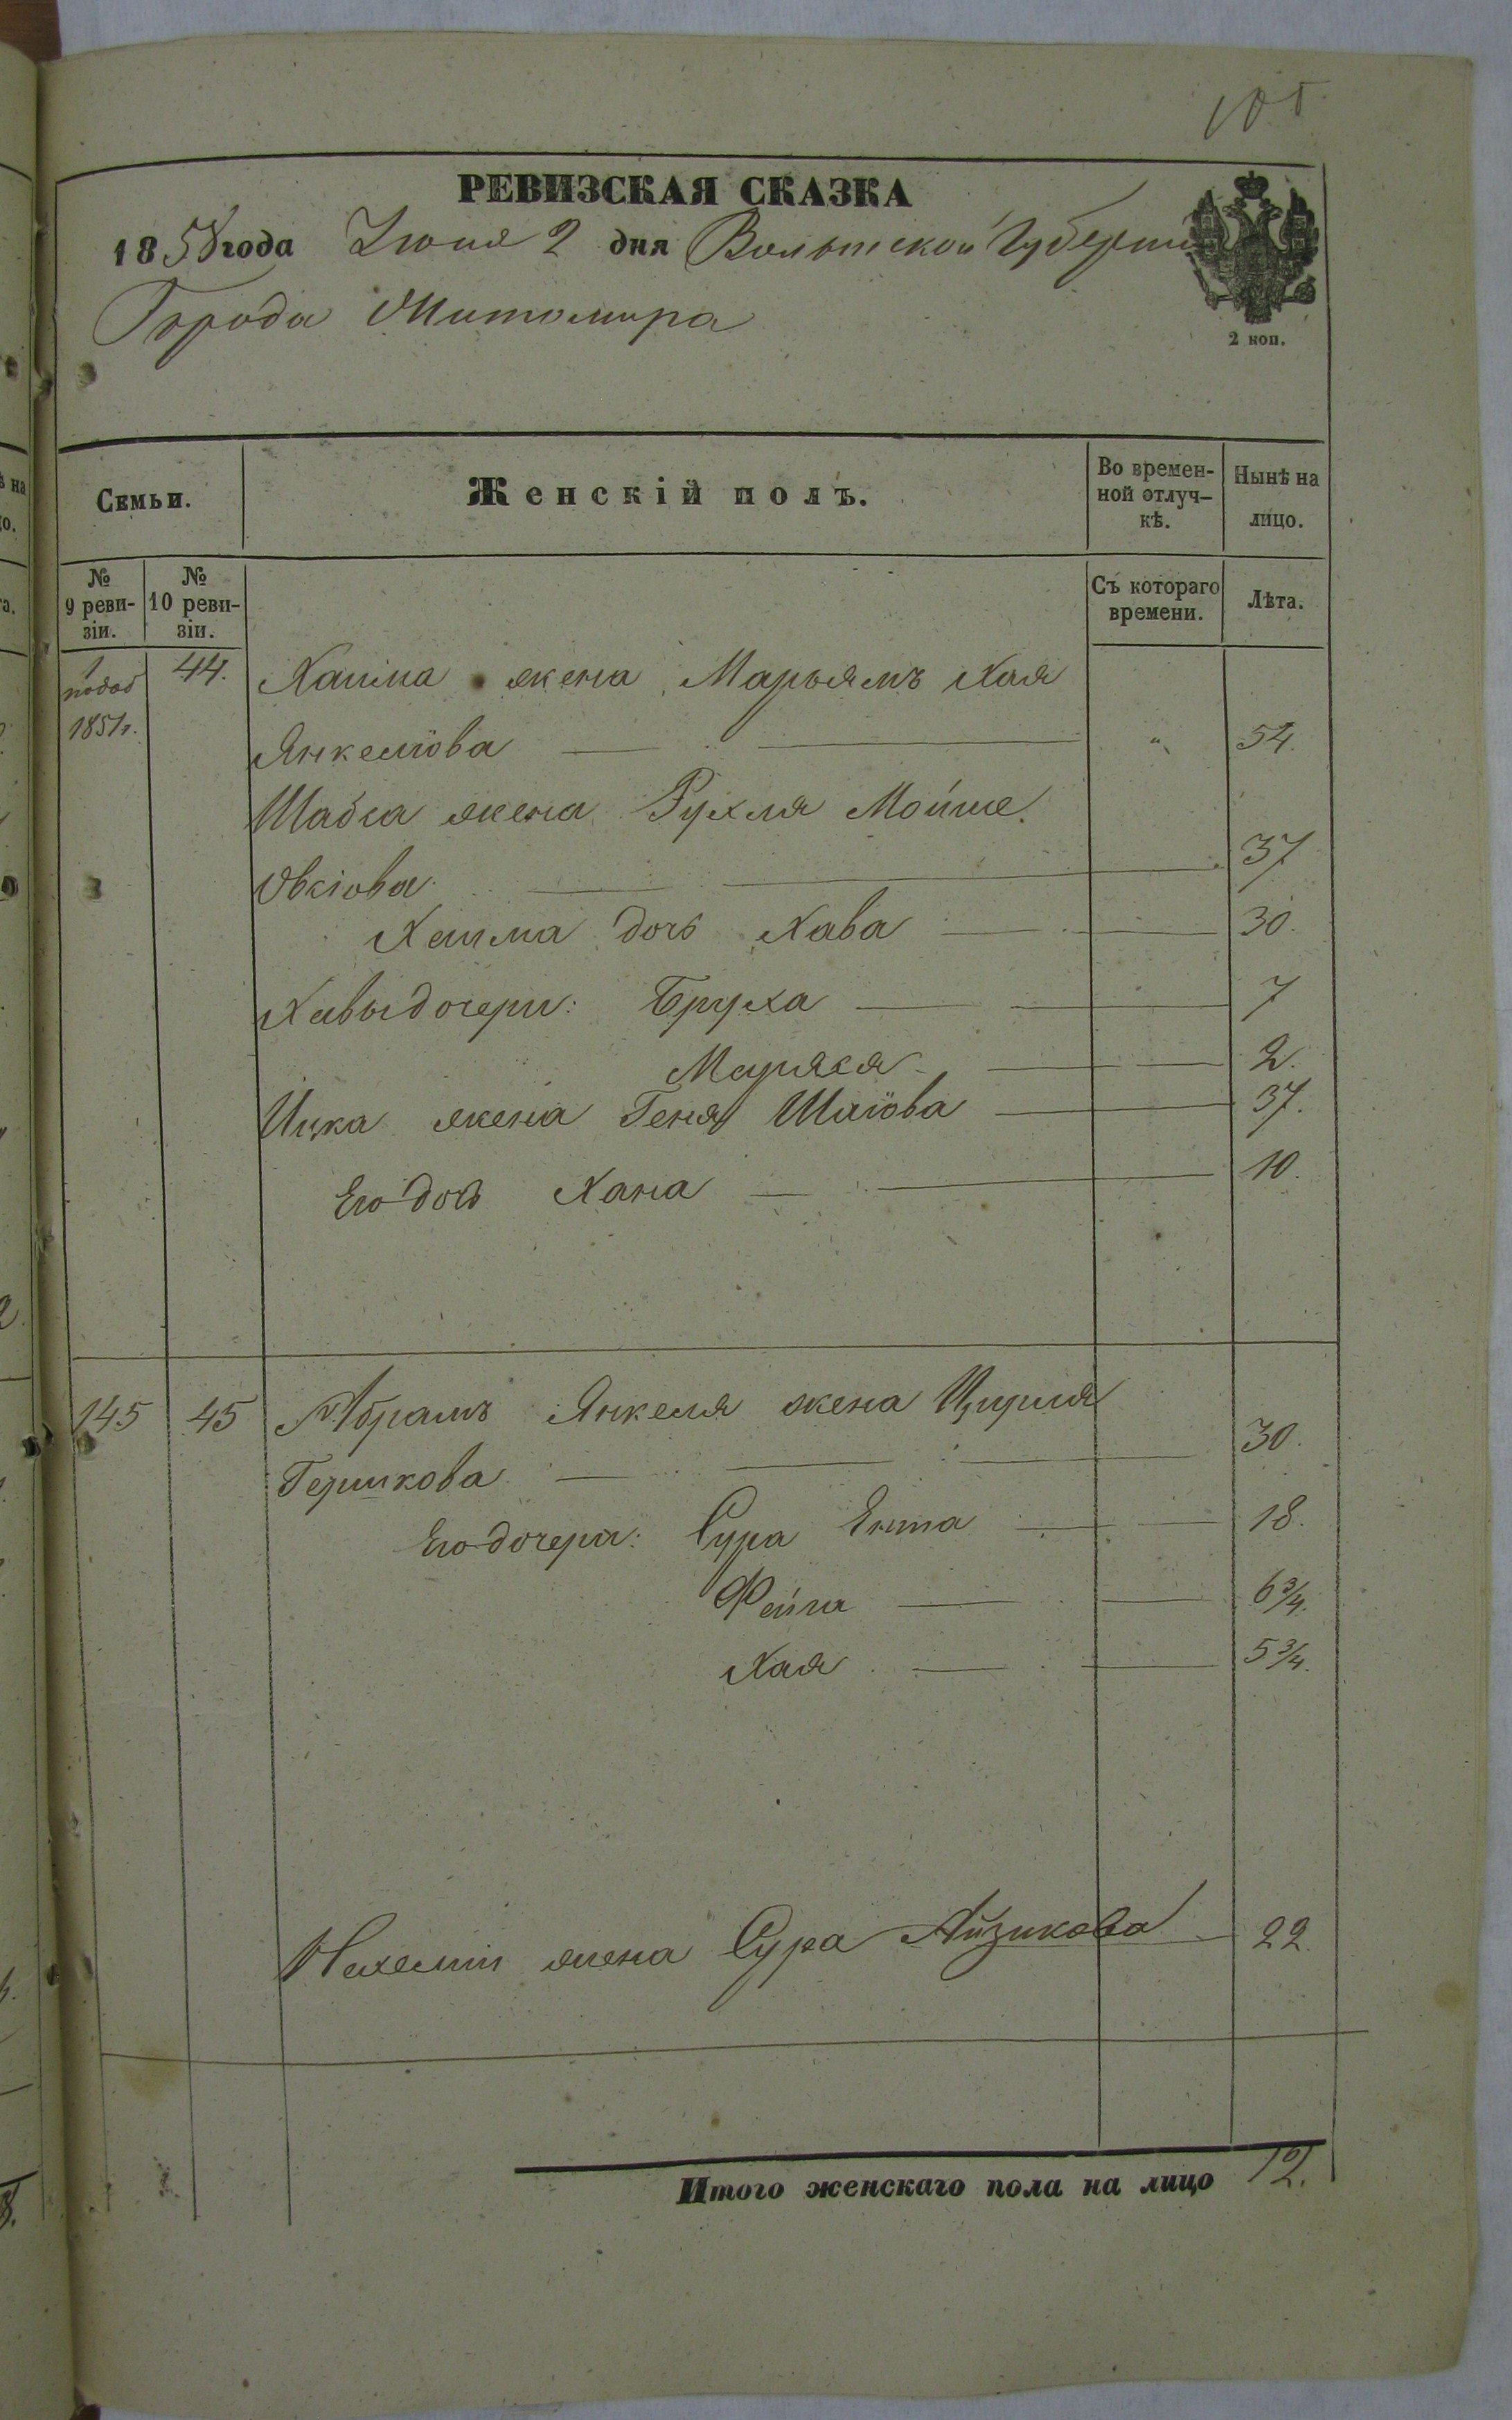 105
РЕВИЗСКАЯ СКАЗКА
1858 года Июня 2 дня Волынской Губернии
Города Житомира
2 коп.
Семьи.
Женскій полъ.
Во времен-
ной отлуч-
кѣ.
Нынѣ на
лицо.
№
9 реви-
зіи.
№
10 реви-
зіи.
Съ котораго
времени.
Лѣта.
1 44. Хаима жена Марьямъ Хая
1851г. Янкелiова — — " 54.
Шабса жена Рухля Мойше
Овсіова — — 37
Хаима дочь Хава — — 30.
Хавы дочери: Бруха — — 7
Маряся — — 2.
Ицка жена Геня Шаiова — 37.
Его дочь Хана — — 10.
145 45 Абрамъ Янкеля жена Цирля
Гершкова — — — 30.
Его дочери: Сура Ента — — 18.
Фейга — — 6 3/4.
Хая — — 5 3/4.
Нахеміи жена Сура Айзикова — 22.
Итого женскаго пола на лицо 12.